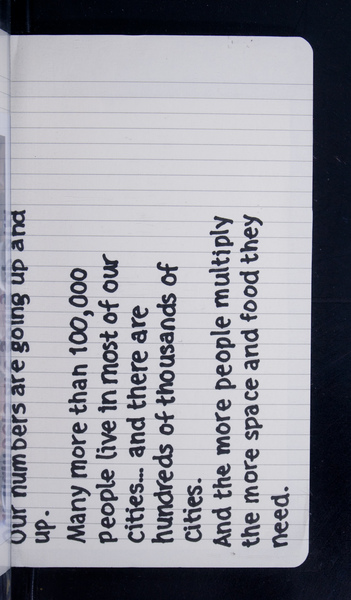 Our numbers are going up and
up.
Many more than 100,000
people live in most of our
Cities... and there are
hundreds of thousands of
Cities.
And the more people multiply
the more space and food they
need.